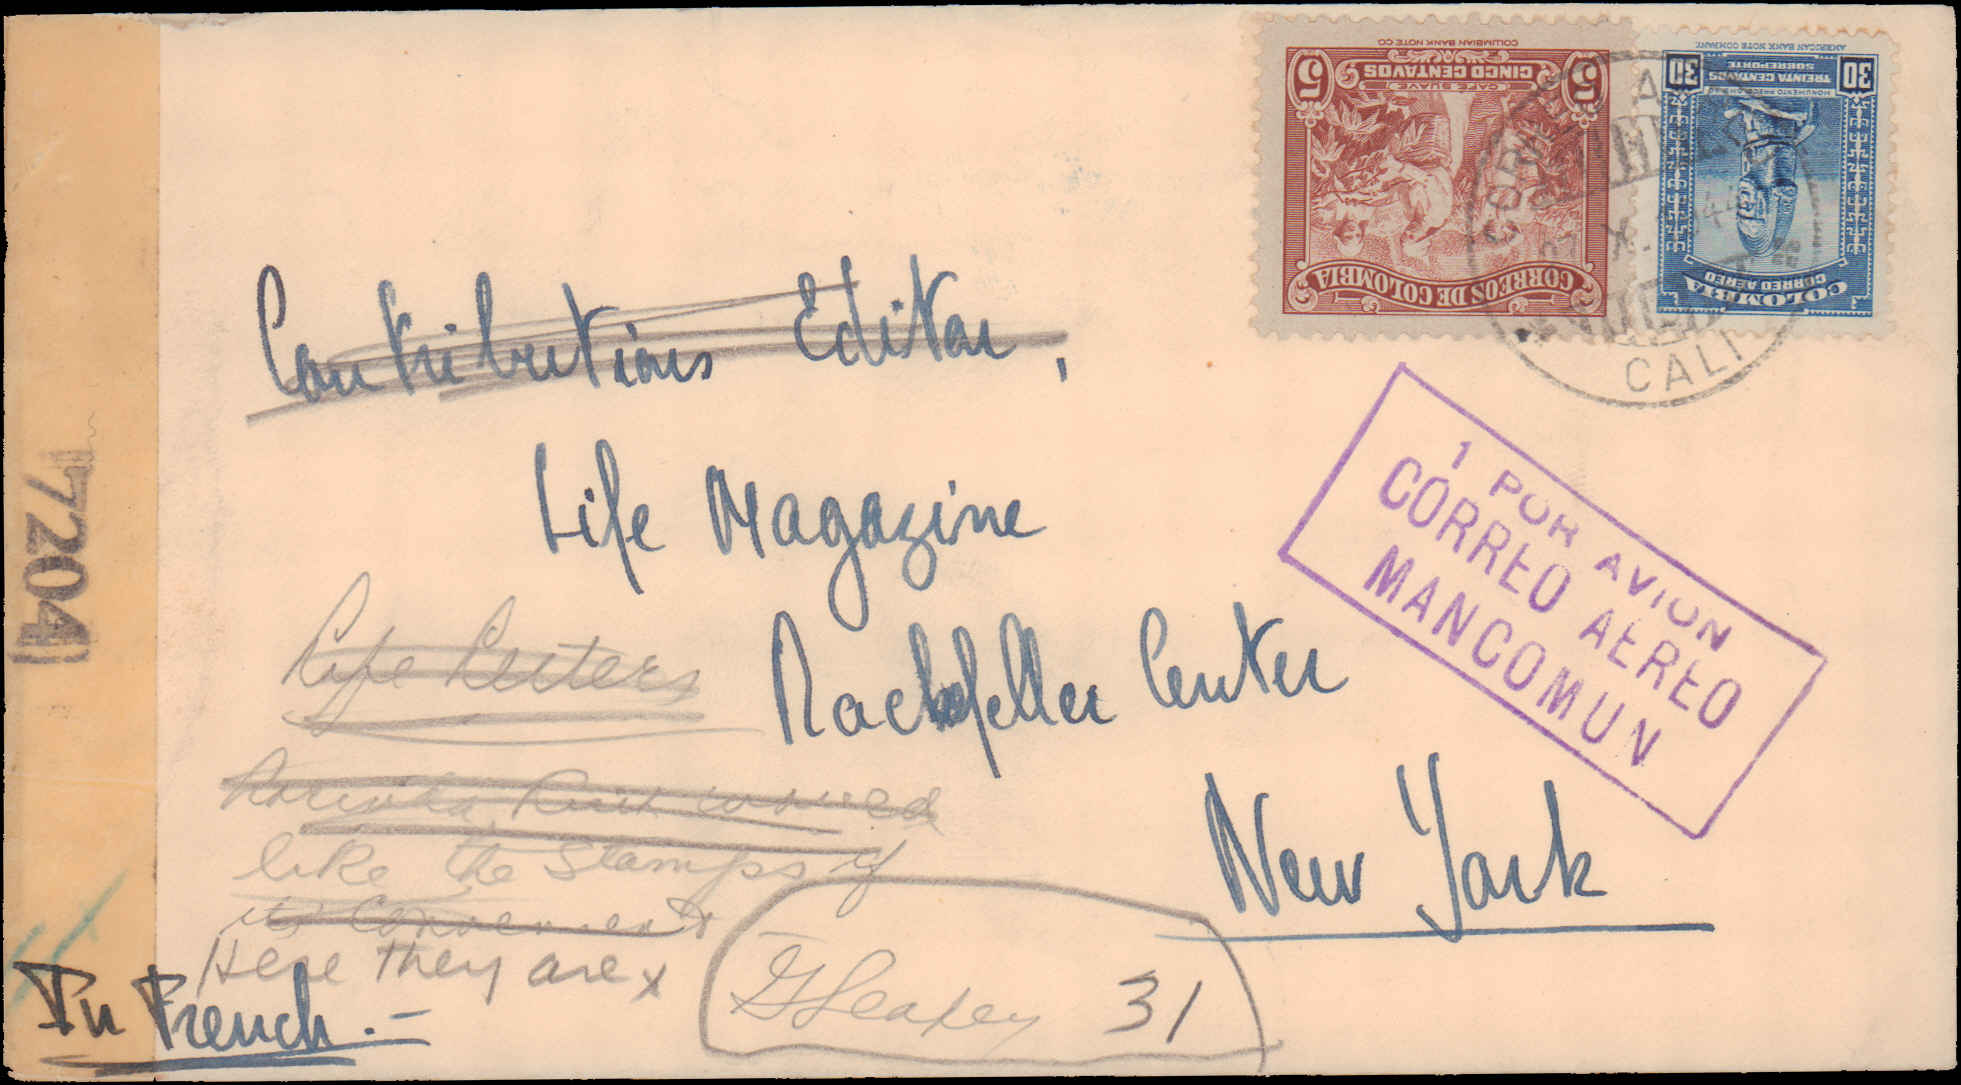 COLUMBIAN BANK NOTE CO
5 CINCO CENTAVOS 5
CAFE SUAVE
CORREOS DE COLOMBIA
AMERICAN BANK NOTE COMPANY
30 TREINTA CENTAVOS 30
SOBREPORTE
CORREO AEREO
COLOMBIA
CALI
1 POR AVION
CORREO AEREO
MANCOMUN
77204
Contributions Editor,
Life Magazine
Life Letters
Rockefeller Center
New York
like the Stamps of
Here they are x
In French.-
31